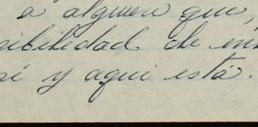 a alguien que,
ibilidad de en
i y aqui esta.